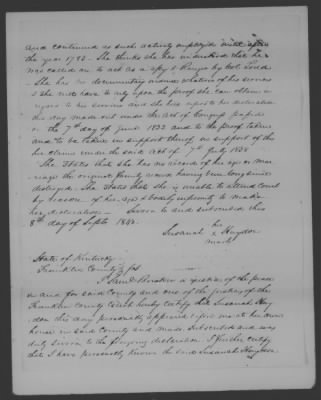 and continued as such actively employed until after
the year 1782. She thinks she has understood that he
was called on to act as a spy & Ranger by Col. Todd
She has no documentary evidence whatever of his services
& she will have to rely upon the proof she can obtain in
regard to his services and she here refers to her declaration
this day made out under the act of Congress passed
on the 7th day of June 1832 and to the proof taken
and to be taken in support thereof in support of this
her claim under the said act of 7th July 1838
She States that she has no record of her age or mar
riage the original family record having been long since
destroyed. She States that she is unable to attend court
by reason of her age & bodily infirmity to make
her declaration – Sworn to and subscribed this
8th day of Septr 1842.
her
Susanah x Haydon
mark
State of Kentucky
Franklin County } Sct
a justice of the peace
in and for said County and one of the justices of the
Franklin County Court hereby certify that Susanah Hay
don this day personally appeared before me at her own
house in said County and made Subscribed and was
duly sworn to the foregoing declaration. I further certify
that I have personally known the said Susanah Haydon